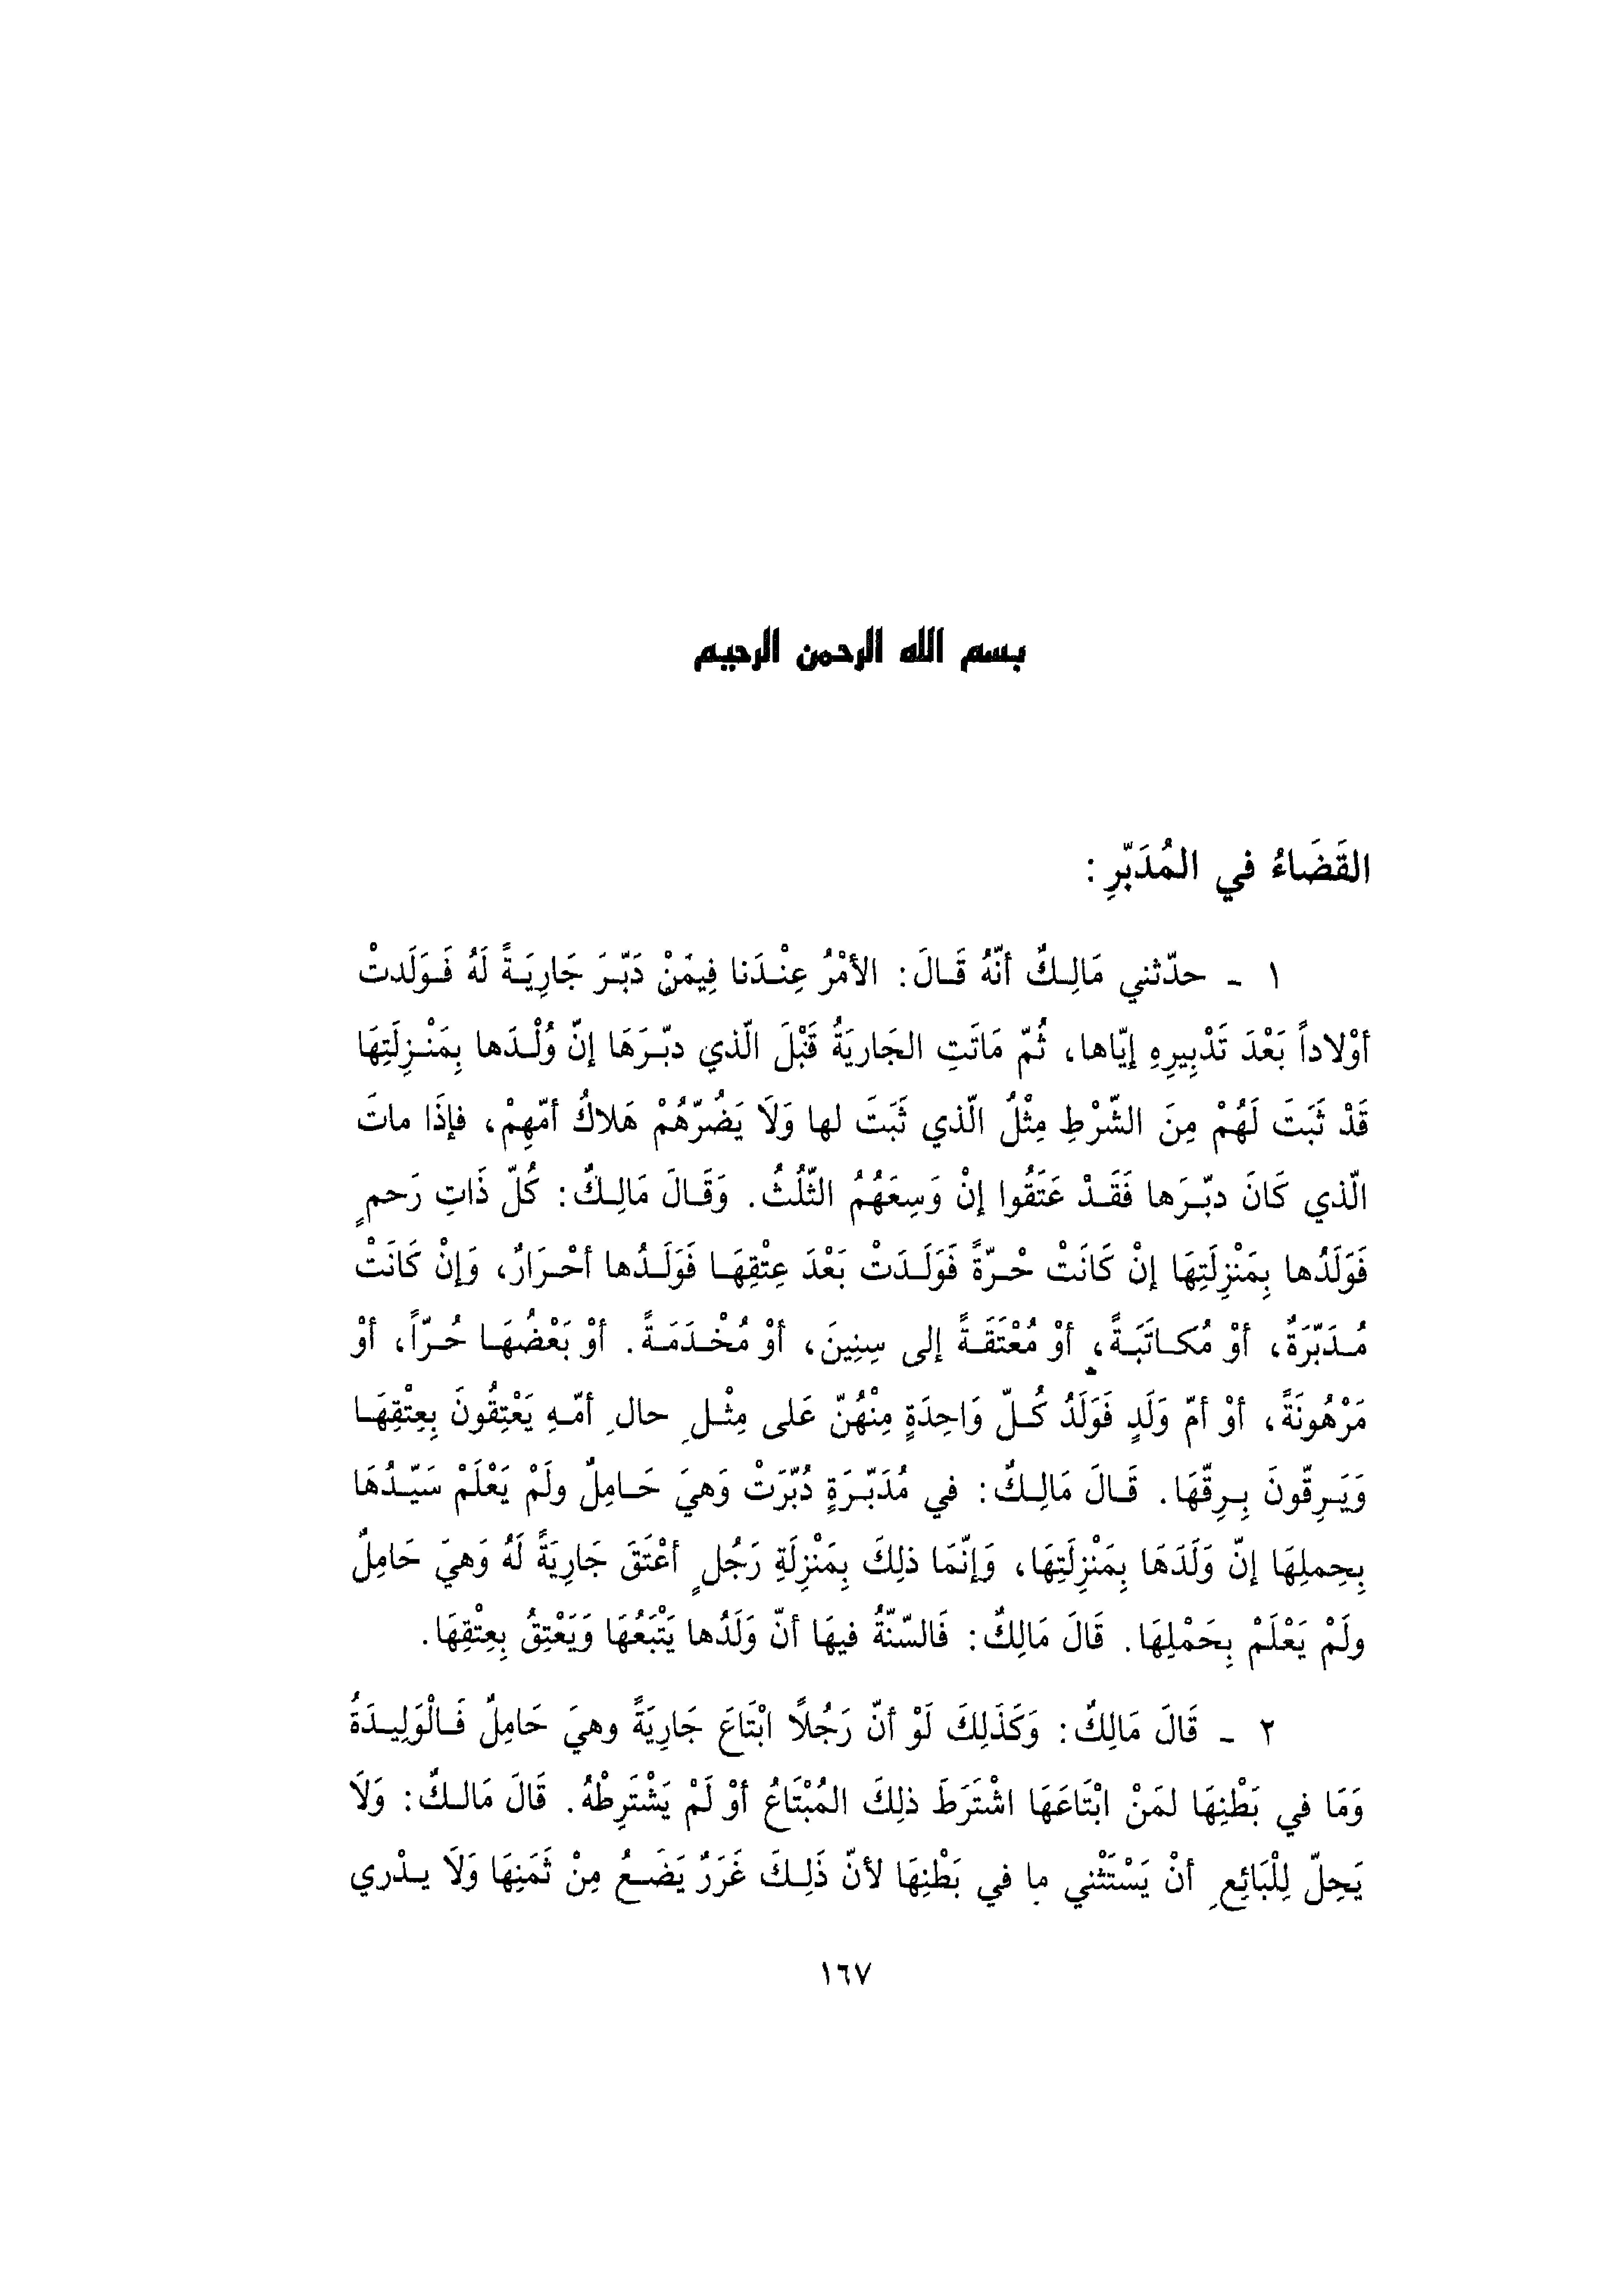 بسم الله الرحمن الرحيم
القَضَاءُ في المُدَبّرِ :
١ - حدّثني مَالِكٌ أنّهُ قَالَ: الأمْرُ عِنْدَنا فِيمَنْ دَبّرَ جَارِيَةً لَهُ فَوَلَدتْ
أوْلاداً بَعْدَ تَدْبِيرِهِ إيّاها، ثُمّ مَاتَتِ الجَاريَةُ قَبْلَ الّذي دبّرَهَا إنّ وُلْدَها بِمَنْزِلَتِهَا
قَدْ ثَبَتَ لَهُمْ مِنَ الشّرْطِ مِثْلُ الّذي ثَبَتَ لها وَلَا يَضُرّهُمْ هَلاكُ أمّهِمْ، فإذَا ماتَ
الّذي كَانَ دبّرَها فَقَدْ عَتَقُوا إنْ وَسِعَهُمُ الثّلُثُ. وَقَالَ مَالِكٌ: كُلّ ذَاتِ رَحمٍ
فَوَلَدُها بِمَنْزِلَتِهَا إنْ كَانَتْ حْرّةً فَوَلَدَتْ بَعْدَ عِتْقِهَا فَوَلَدُها أحْرَارٌ، وَإنْ كَانَتْ
مُدَبّرَةٌ، أوْ مُكاتَبَةً، أوْ مُعْتَقَةً إلى سِنِينَ، أوْ مُخْدَمَةً. أوْ بَعْضُهَا حُرّاً، أوْ
مَرْهُونَةً، أوْ أمّ وَلَدٍ فَوَلَدُ كُلّ وَاحِدَةٍ مِنْهُنّ عَلى مِثْلِ حالِ أمّهِ يَعْتِقُونَ بِعِتْقِهَا
وَيَرِقّونَ بِرِقّهَا. قَالَ مَالِكٌ: في مُدَبّرَةٍ دُبّرَتْ وَهيَ حَامِلٌ ولَمْ يَعْلَمْ سَيّدُهَا
بِحِملِهَا إنّ وَلَدَهَا بِمَنْزِلَتِهَا، وَإنّمَا ذلِكَ بِمَنْزِلَةِ رَجُلٍ أعْتَقَ جَارِيَةً لَهُ وَهيَ حَامِلٌ
ولَمْ يَعْلَمْ بِحَمْلِهَا. قَالَ مَالِكٌ: فَالسّنّةُ فيهَا أنّ وَلَدُها يَتْبَعُهَا وَيَعْتِقُ بِعِتْقِهَا.
٢ - قَالَ مَالِكٌ: وَكَذَلِكَ لَوْ أنّ رَجُلاً ابْتَاعَ جَارِيَةً وهيَ حَامِلٌ فَالْوَلِيدَةُ
وَمَا في بَطْنِهَا لمَنْ ابْتَاعَهَا اشْتَرَطَ ذلِكَ المُبْتَاعُ أوْ لَمْ يَشْتَرِطْهُ. قَالَ مَالكٌ: وَلَا
يَحِلّ لِلْبَائِعِ أنْ يَسْتَثْني ما في بَطْنِهَا لأنّ ذَلِكَ غَرَرٌ يَضَعُ مِنْ ثَمَنِهَا وَلَا يدْري
١٦٧